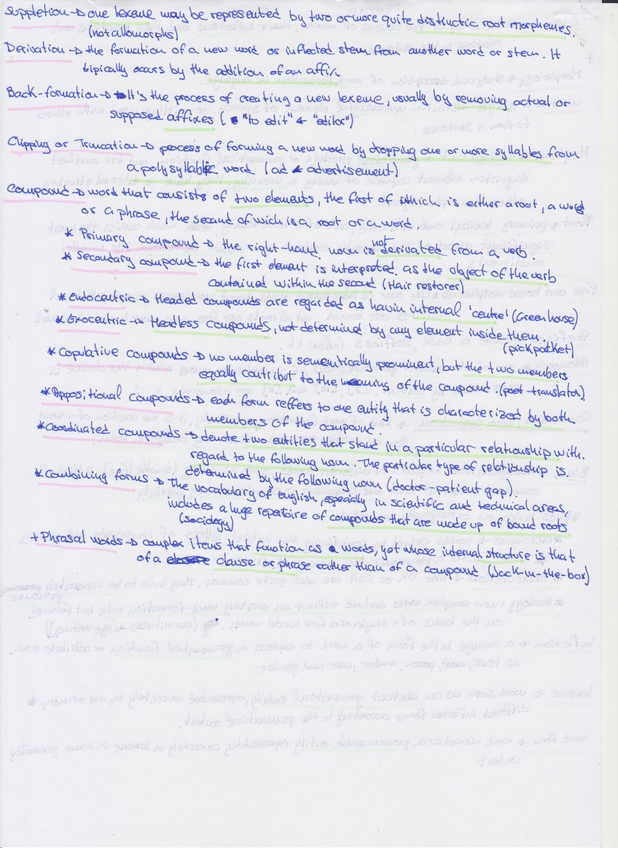 Suppletion → one lexeme may be represented by two or more quite distinctic root morphemes.
(not allomorphs)
Derivation → the formation of a new word or inflected stem from another word or stem. It
tipically occurs by the addition of an affix
Back-formation → It's the process of creating a new lexeme, usually by removing actual or
supposed affixes ( "to edit" ← "editor")
Clipping or Truncation → process of forming a new word by dropping one or more syllables from
a polysyllabic word (ad ← advertisement)
Compound → word that consists of two elements, the first of which is either a root, a word
or a phrase, the second of wich is a root or a word.
* Primary compound → the right-hand noun is not derivated from a verb.
* Secondary compound → the first element is interpreted as the object of the verb
contained within the second (Hair restorer)
* Endocentric → Headed compounds are regarded as havin internal 'centre' (Greenhouse)
* Exocentric → Headless compounds, not determined by any element inside them.
(pickpocket)
* Copulative compounds → no member is sementically prominent, but the two members
equally contribut to the meaning of the compound. (poet-translator)
* Appositional compounds → each form reffers to one entity that is characterized by both
members of the compound.
* Coordinated compounds → denote two entities that stand in a particular relationship with
regard to the following noun. The particular type of relationship is
determined by the following noun (doctor-patient gap).
* Combining forms → The vocabulary of english, especially in scientific and technical areas,
includes a huge repertoire of compounds that are made up of bound roots
(sociology)
+ Phrasal words → complex items that function as words, yet whose internal structure is that
of a clause or phrase rather than of a compound (Jack-in-the-box)